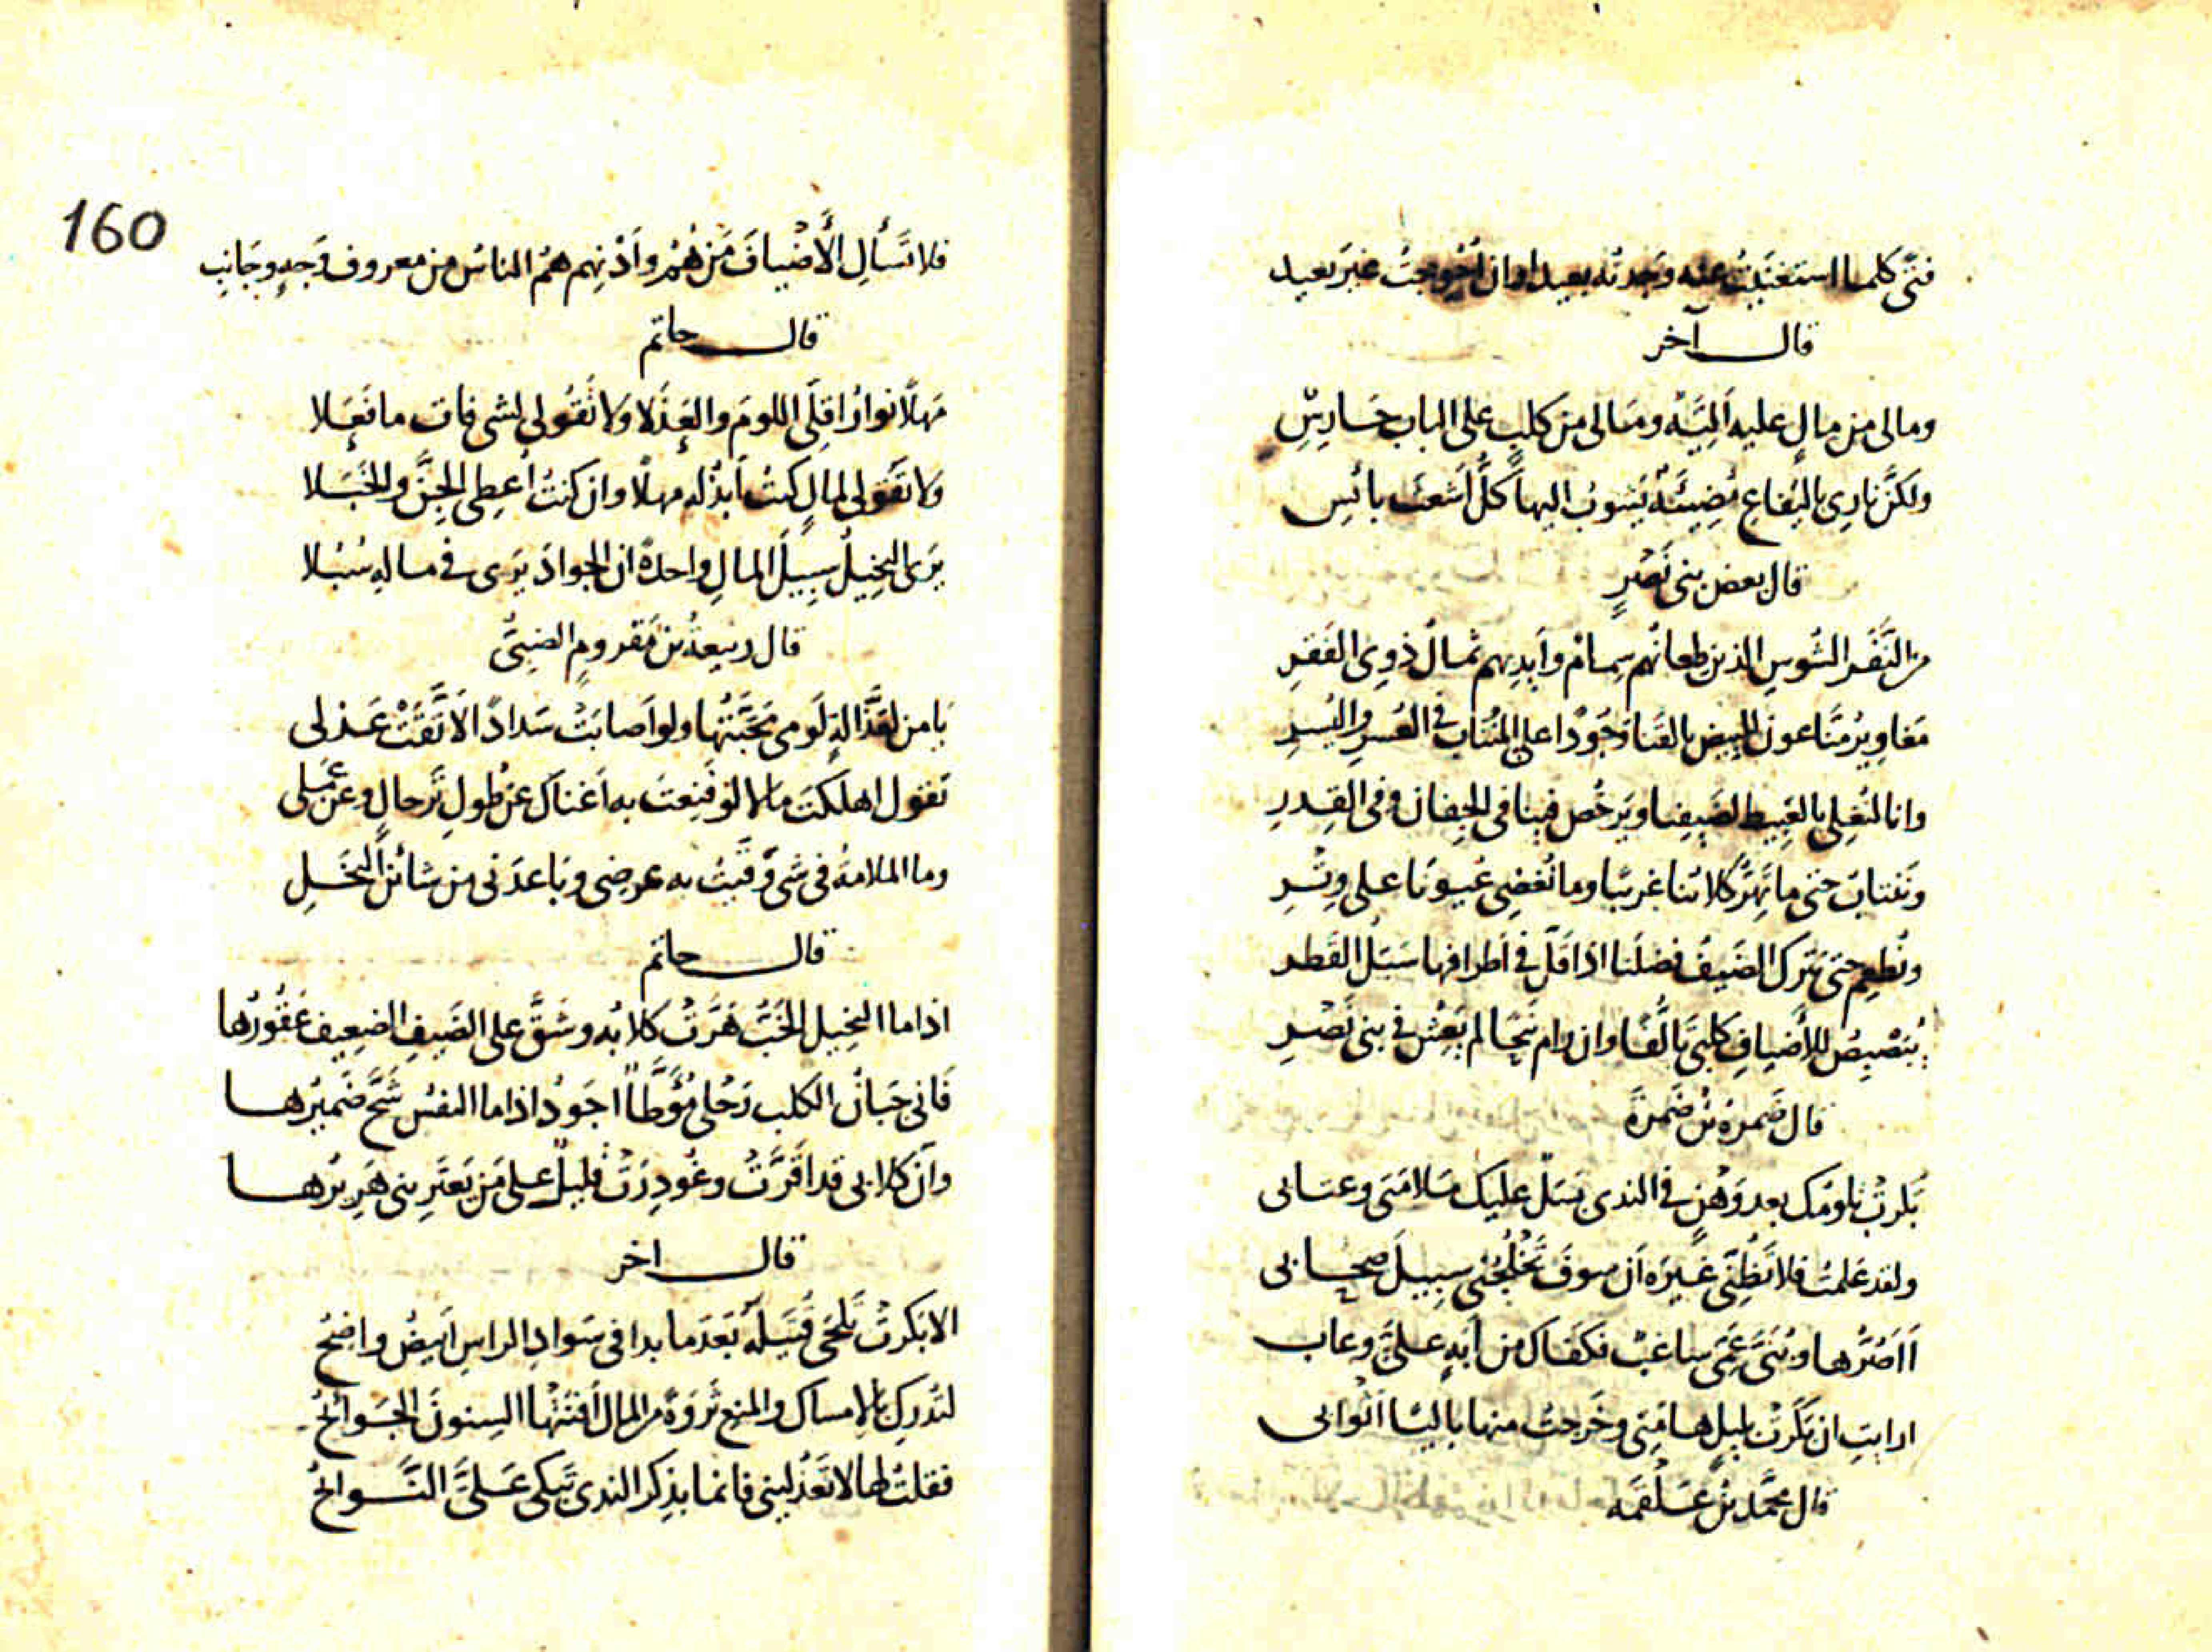 فتًى كلما استغنيتُ عنه وَجدتُه بعيدا وان اُحوِجتُ غيرَ بعيد
قال آخر
ومالى من مالٍ عليه اَلِيَّه ومَالى من كلبٍ على الباب حَارِسِ
ولكنَّ نارى باليَفاعِ مُضِيئَةٌ يَثوبُ اليها كلُّ اَشعثَ بائس
قال بعض بنى نَصْرٍ
من النَّفَر الشُوسِ الذين طعانُهم سِمامٌ وأيديهم ثمالُ ذوِى الفَقرِ
مَغاوِيرُ منّاعون للبِيض بالقَنا وَجُودًا على المُنتابِ فى العُسرِ واليُسرِ
وانا لنُغلِى بالعَبِيط لضَيفِنا ويَرخُص فينا فى الجِفانِ وفى القِدرِ
ونُنتابُ حتى ما تَهِرُّ كلابُنا غريبًا وما نُغضِى عُيونًا على وِتْرِ
ونُطعِم حتى يَترك الضَيفُ فضلَنا اذا قَلّ فى اَطرافها سَبَلُ القَطرِ
يُبَصْبِصُ للأضيافِ كلبِىَ بالفنا وان رام نَبحًا لم يَعِش فى بنى نَصْرِ
قال ضَمرةُ بنُ ضَمرَةَ
بَكرتْ تلومُك بعد وَهْنٍ فى الندى بَسْلٌ عليك مَلامَتى وعتابى
ولقد عَلمتُ فلا تَظُنِّى غَيرَه اَن سوفَ تَخْلُجُنى سبيلَ صحابى
أَاَصُرُّها وبُنَىُّ عَمِّى ساغبٌ فكَفاك من اِبَةٍ علىَّ وعاب
ارايتِ ان بَكَرتْ بليلٍ هامَتِى وخَرجتُ منها باليًا اَثوابى
قال محمَّد بنُ عَلْقَمَه
160
فلا تَسألِ الأَضيافَ مَن هُمْ واَدْنِهِم هُمُ الناسُ من معروف وَجهٍ وجَانِب
قال حاتم
مَهلًا نوارُ اَقِلِّى اللومَ والعَذَلا ولا تَقُولى لشىٍ فات ما فَعَلا
ولا تَقُولى لمالٍ كنتُ اَبذُله مهلًا وان كنتُ اُعطِى الجِنَّ والخَبَلا
يَرى البخِيلُ سبِيلَ المالِ واحدةً ان الجوادَ يَرى فى مالهِ سُبُلا
قال ربيعةُ بن مَقرومٍ الضبِّىُّ
يا من لعَذّالةٍ لَومى مَحَبَّتُها ولو اَصابَتْ سَدادًا لاَتَّقَتْ عَذلى
تقول اهلكتَ مالا لو قَنِعتَ به اَغناك عن طُولِ تَرحالٍ وعن عَمَلى
وما الملامةُ فى شىٍ وَقَيتُ به عرضى وبَاعدَنى من شائنِ البَخَلِ
قال حاتم
اذا ما البخِيل الخَبُّ هَرَّتْ كلابُه وشَقَّ على الضَيفِ الضعيف عَقُورُها
فَانى جَبانُ الكلب رَحْلى مُوَطَّأً اَجَودُ اذا ما النفسُ شَحَّ ضَميرُها
وانّ كلابى قد اُقِرَّتْ وعُودِرَتْ قليلٌ على مَن يَعتَرِينى هَرِيرُها
قال اخر
الا بَكرتْ تَلحَى قُتَيلَةُ بَعدَما بدا فى سَوادِ الراسِ اَبيضُ واضِحُ
لتُدرِك بالامساك والمنع ثَروَةً من المال اَفنَتْها السِنونَ الجَوائحُ
فقلتُ لها لا تَعذُلينى فانما بذِكر الندى تَبكى عَلىَّ النَّوائحُ